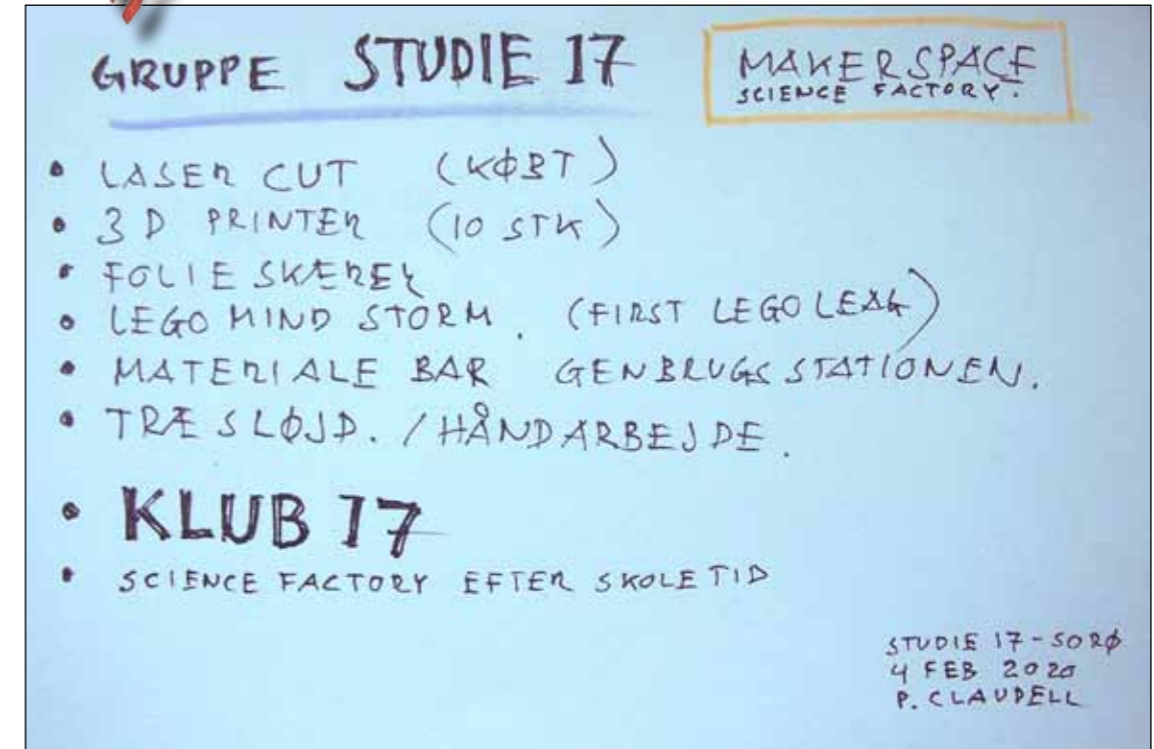 GRUPPE STUDIE 17
MAKERSPACE
SCIENCE FACTORY.
• LASER CUT (KØBT)
• 3D PRINTER (10 STK)
• FOLIE SKÆRER
• LEGO MIND STORM. (FIRST LEGO LEAG)
• MATERIALE BAR GENBRUGSSTATIONEN.
• TRÆ SLØJD. / HÅNDARBEJDE.
• KLUB 17
• SCIENCE FACTORY EFTER SKOLETID
STUDIE 17 - SORØ
4 FEB 2020
P. CLAUDELL